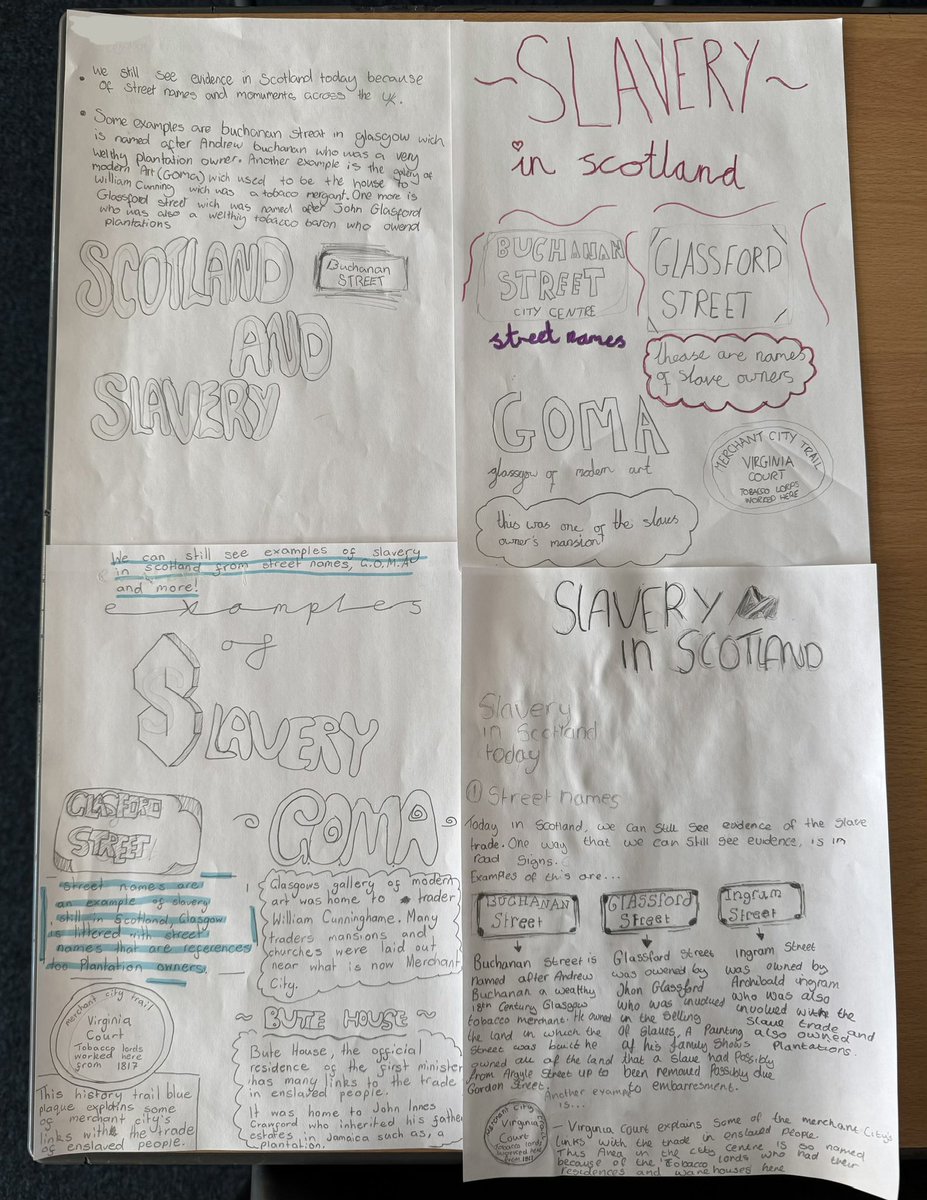 • We still see evidence in Scotland today because
of street names and momuments across the UK.
• Some examples are buchanan Streat in glasgow wich
is named after Andrew buchanan who was a very
welthy plantation owner. Another example is the gallery of
modern Art (Goma) wich used to be the house to
William Cunning wich was a tobaco mergant. One more is
Glassford street wich was named after John Glasford
who was also a welthiy tobacco baron who owend
plantations
SCOTLAND
AND
SLAVERY
Buchanan
STREET
~SLAVERY~
in scotland
BUCHANAN
STREET
CITY CENTRE
street names
GLASSFORD
STREET
thease are names
of slave owners
GOMA
glassgow of modern art
this was one of the slaves
owner's mansion
MERCHANT CITY TRAIL
VIRGINIA
COURT
TOBACCO LORDS
WORKED HERE
We can still see examples of slavery
in scotland from street names, G.O.M.A
and more!
examples
of
SLAVERY
GLASFORD
STREET
Street names are
an example of slavery
still in Scotland, Glasgow
is littered with street
names that are references
too Plantation owners.
merchant city trail
Virginia
Court
Tobacco lords
worked here
from 1817
This history trail blue
plaque explains some
of merchant city's
links with the trade
of enslaved people.
~ GOMA ~
Glasgows gallery of modern
art was home to trader
William Cunninghame. Many
traders mansions and
churches were laid out
near what is now Merchant
City.
~ BUTE HOUSE ~
Bute House, the official
residence of the first minister
has many links to the trade
in enslaved people.
It was home to John Innes
Crawford who inherited his father
estates in Jamaica such as, a
plantation.
SLAVERY
in SCOTLAND
Slavery
in Scotland
today
① Street names
Today in Scotland, we can still see evidence of the slave
trade. One way that we can still see evidence, is in
road signs.
Examples of this are...
BUCHANAN
Street
Buchanan Street is
named after Andrew
Buchanan a wealthy
18th Century Glasgow
tobacco merchant. He owned
the land in which the
Street was built he
owned all of the land
from Argyle Street up to
Gordon Street.
GLASSford
Street
Glassford Street
was owened by
Jhon Glassford
who was involved
in the selling
of Slaves, A Painting
of his family shows
that a slave had Possibly
been removed Possibly due
to embaresment.
Ingram
Street
Ingram Street
was owened by
Archibald ingram
who was also
involved with the
slave trade and
also owned
Plantations.
Another example
is...
Merchant City Trail
Virginia
Court
Tobacco lords
worked here
from 1817
– Virginia Court explains Some of the merchant City's
links with the trade in enslaved People
This Area in the city centre is so named
because of the Tobacco lords who had their
residences and warehouses here